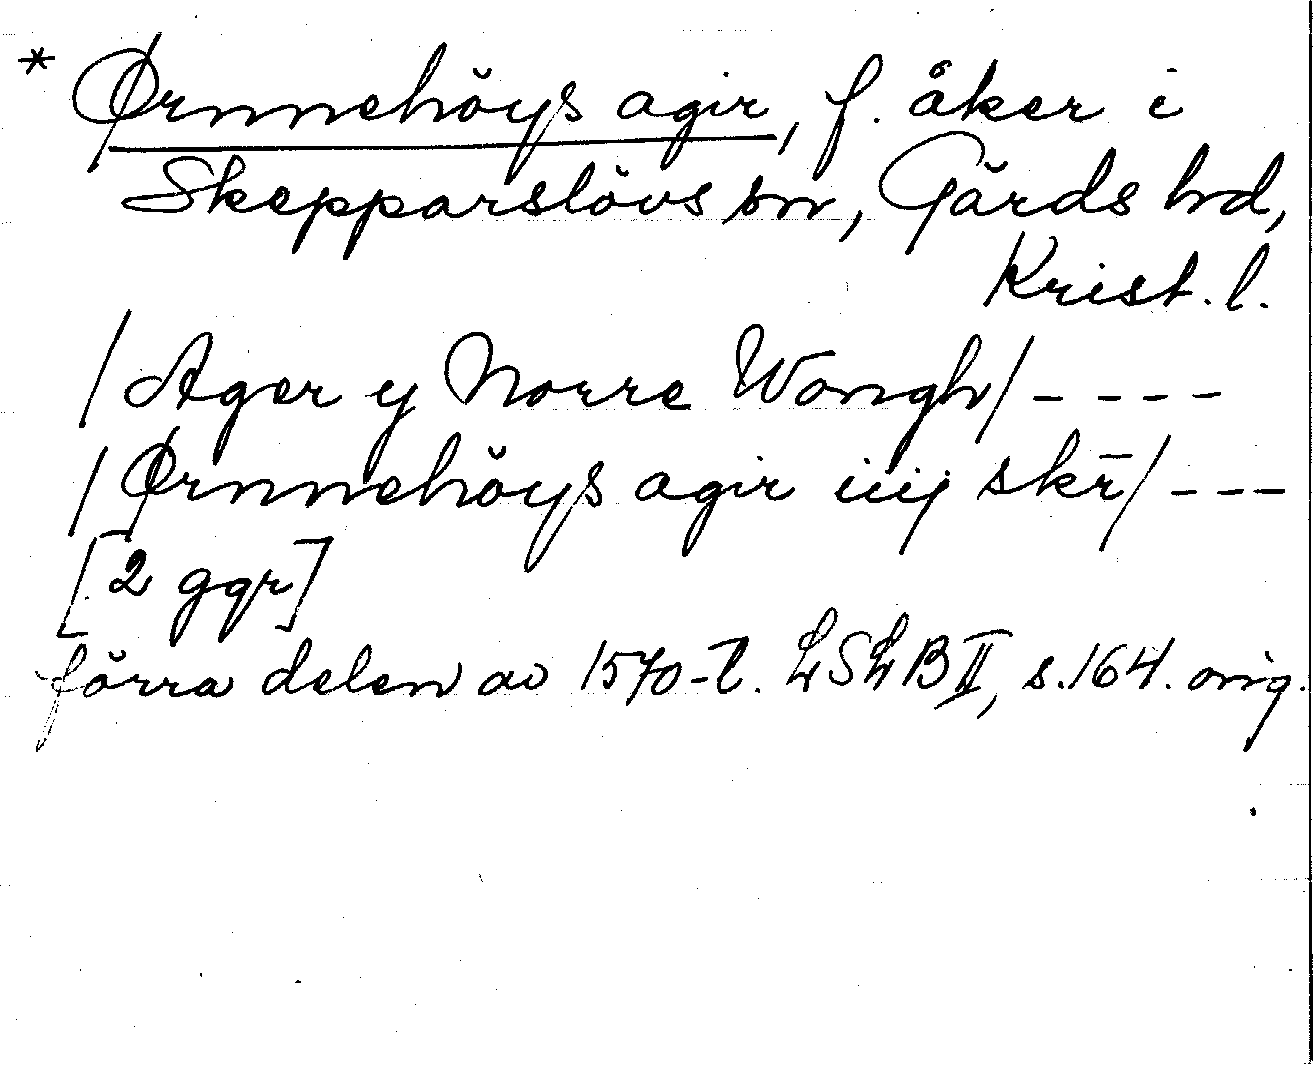 * Ørnnehöys agir, f. åker i
Skepparslövs sn, Gärds hd,
Krist. l.
/Ager y Norre Wongh/----
/Ørnnehöys agir iiij skr̄/---
[2 ggr]
förra delen av 1570-t. LSLB II, s. 164. orig.